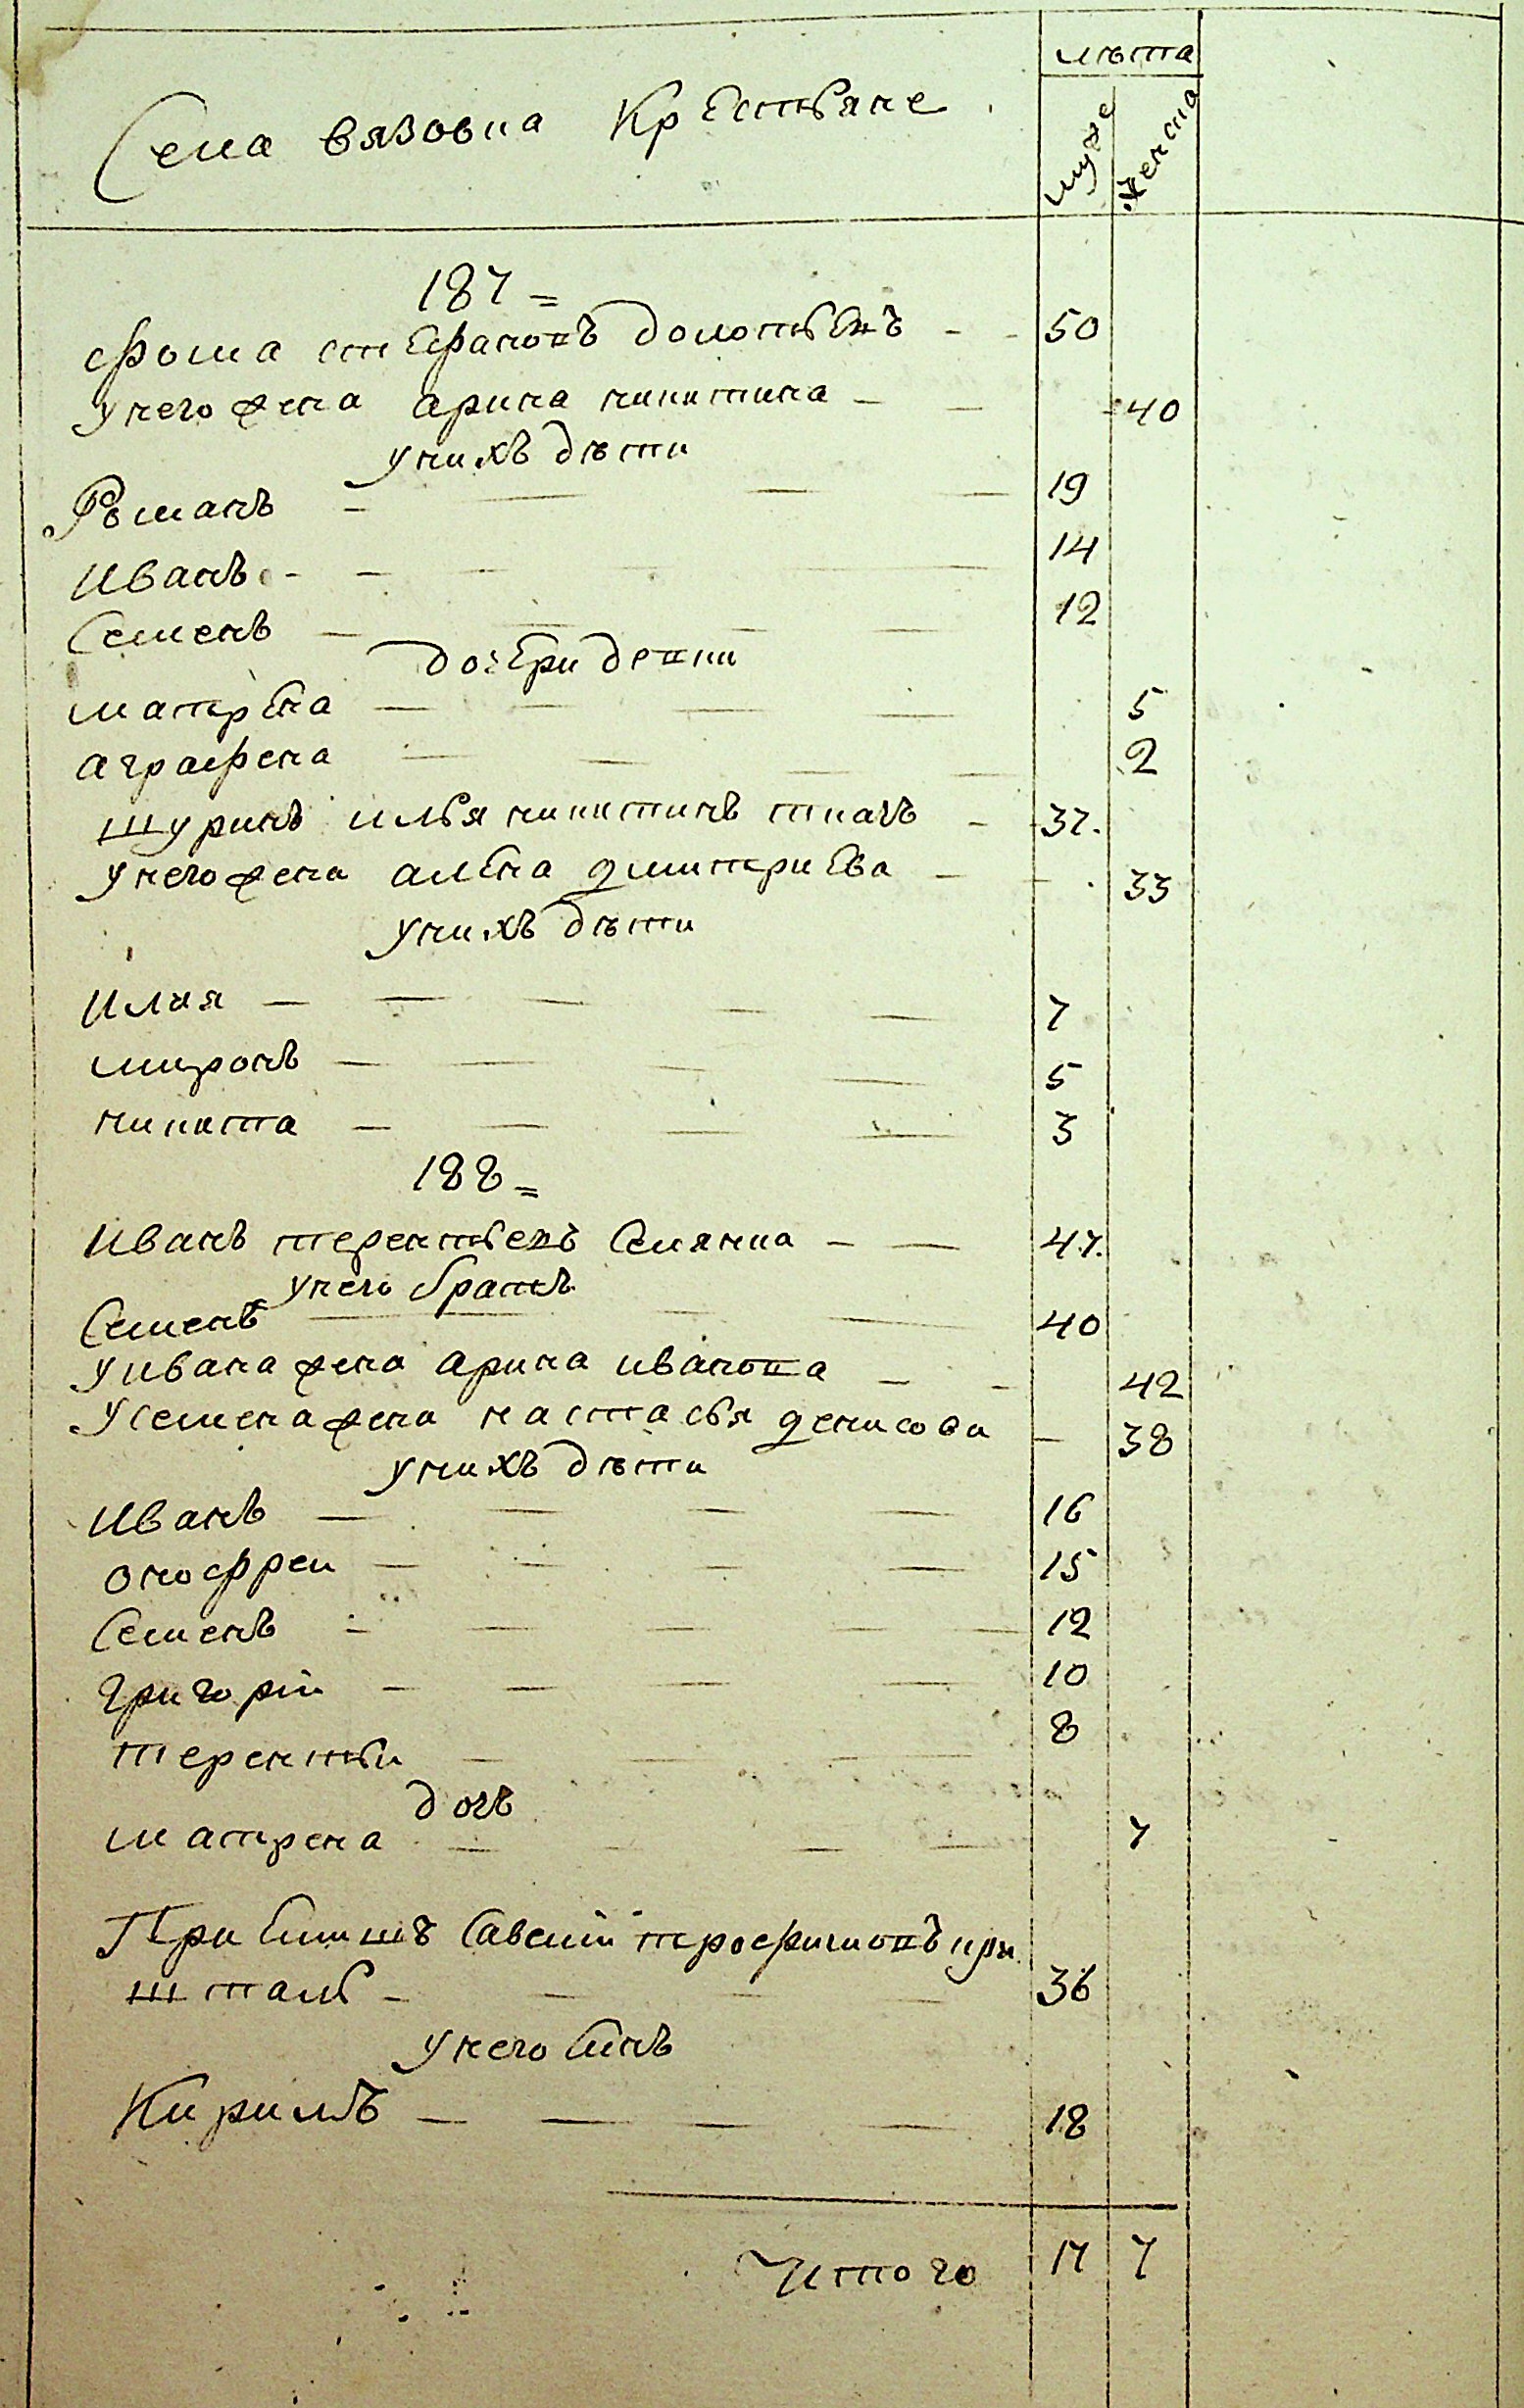 лѣта
Села вязовка Крестьяне
муже
женска
187=
фома стефановъ долотьевъ 50
у него жена арина никитина 40
у нихъ дѣти
Романъ 19
Иванъ 14
Семенъ 12
дочери девки
матрена 5
аграфена 2
шуринъ илья никитинъ ткачь 37.
у него жена алена дмитриева 33
у нихъ дѣти
Илия 7
миронъ 5
никита 3
188=
Иванъ терентьевъ Семянка 47.
у него братъ
Семенъ 40
у ивана жена арина иванова 42
у семена жена настасья денисова 38
у нихъ дѣти
Иванъ 16
онофреи 15
Семенъ 12
григорiи 10
терентьи 8
дочь
матрена 7
Савелии трофимовъ
36
у него сынъ
Кирилъ 18
Итого 17 7